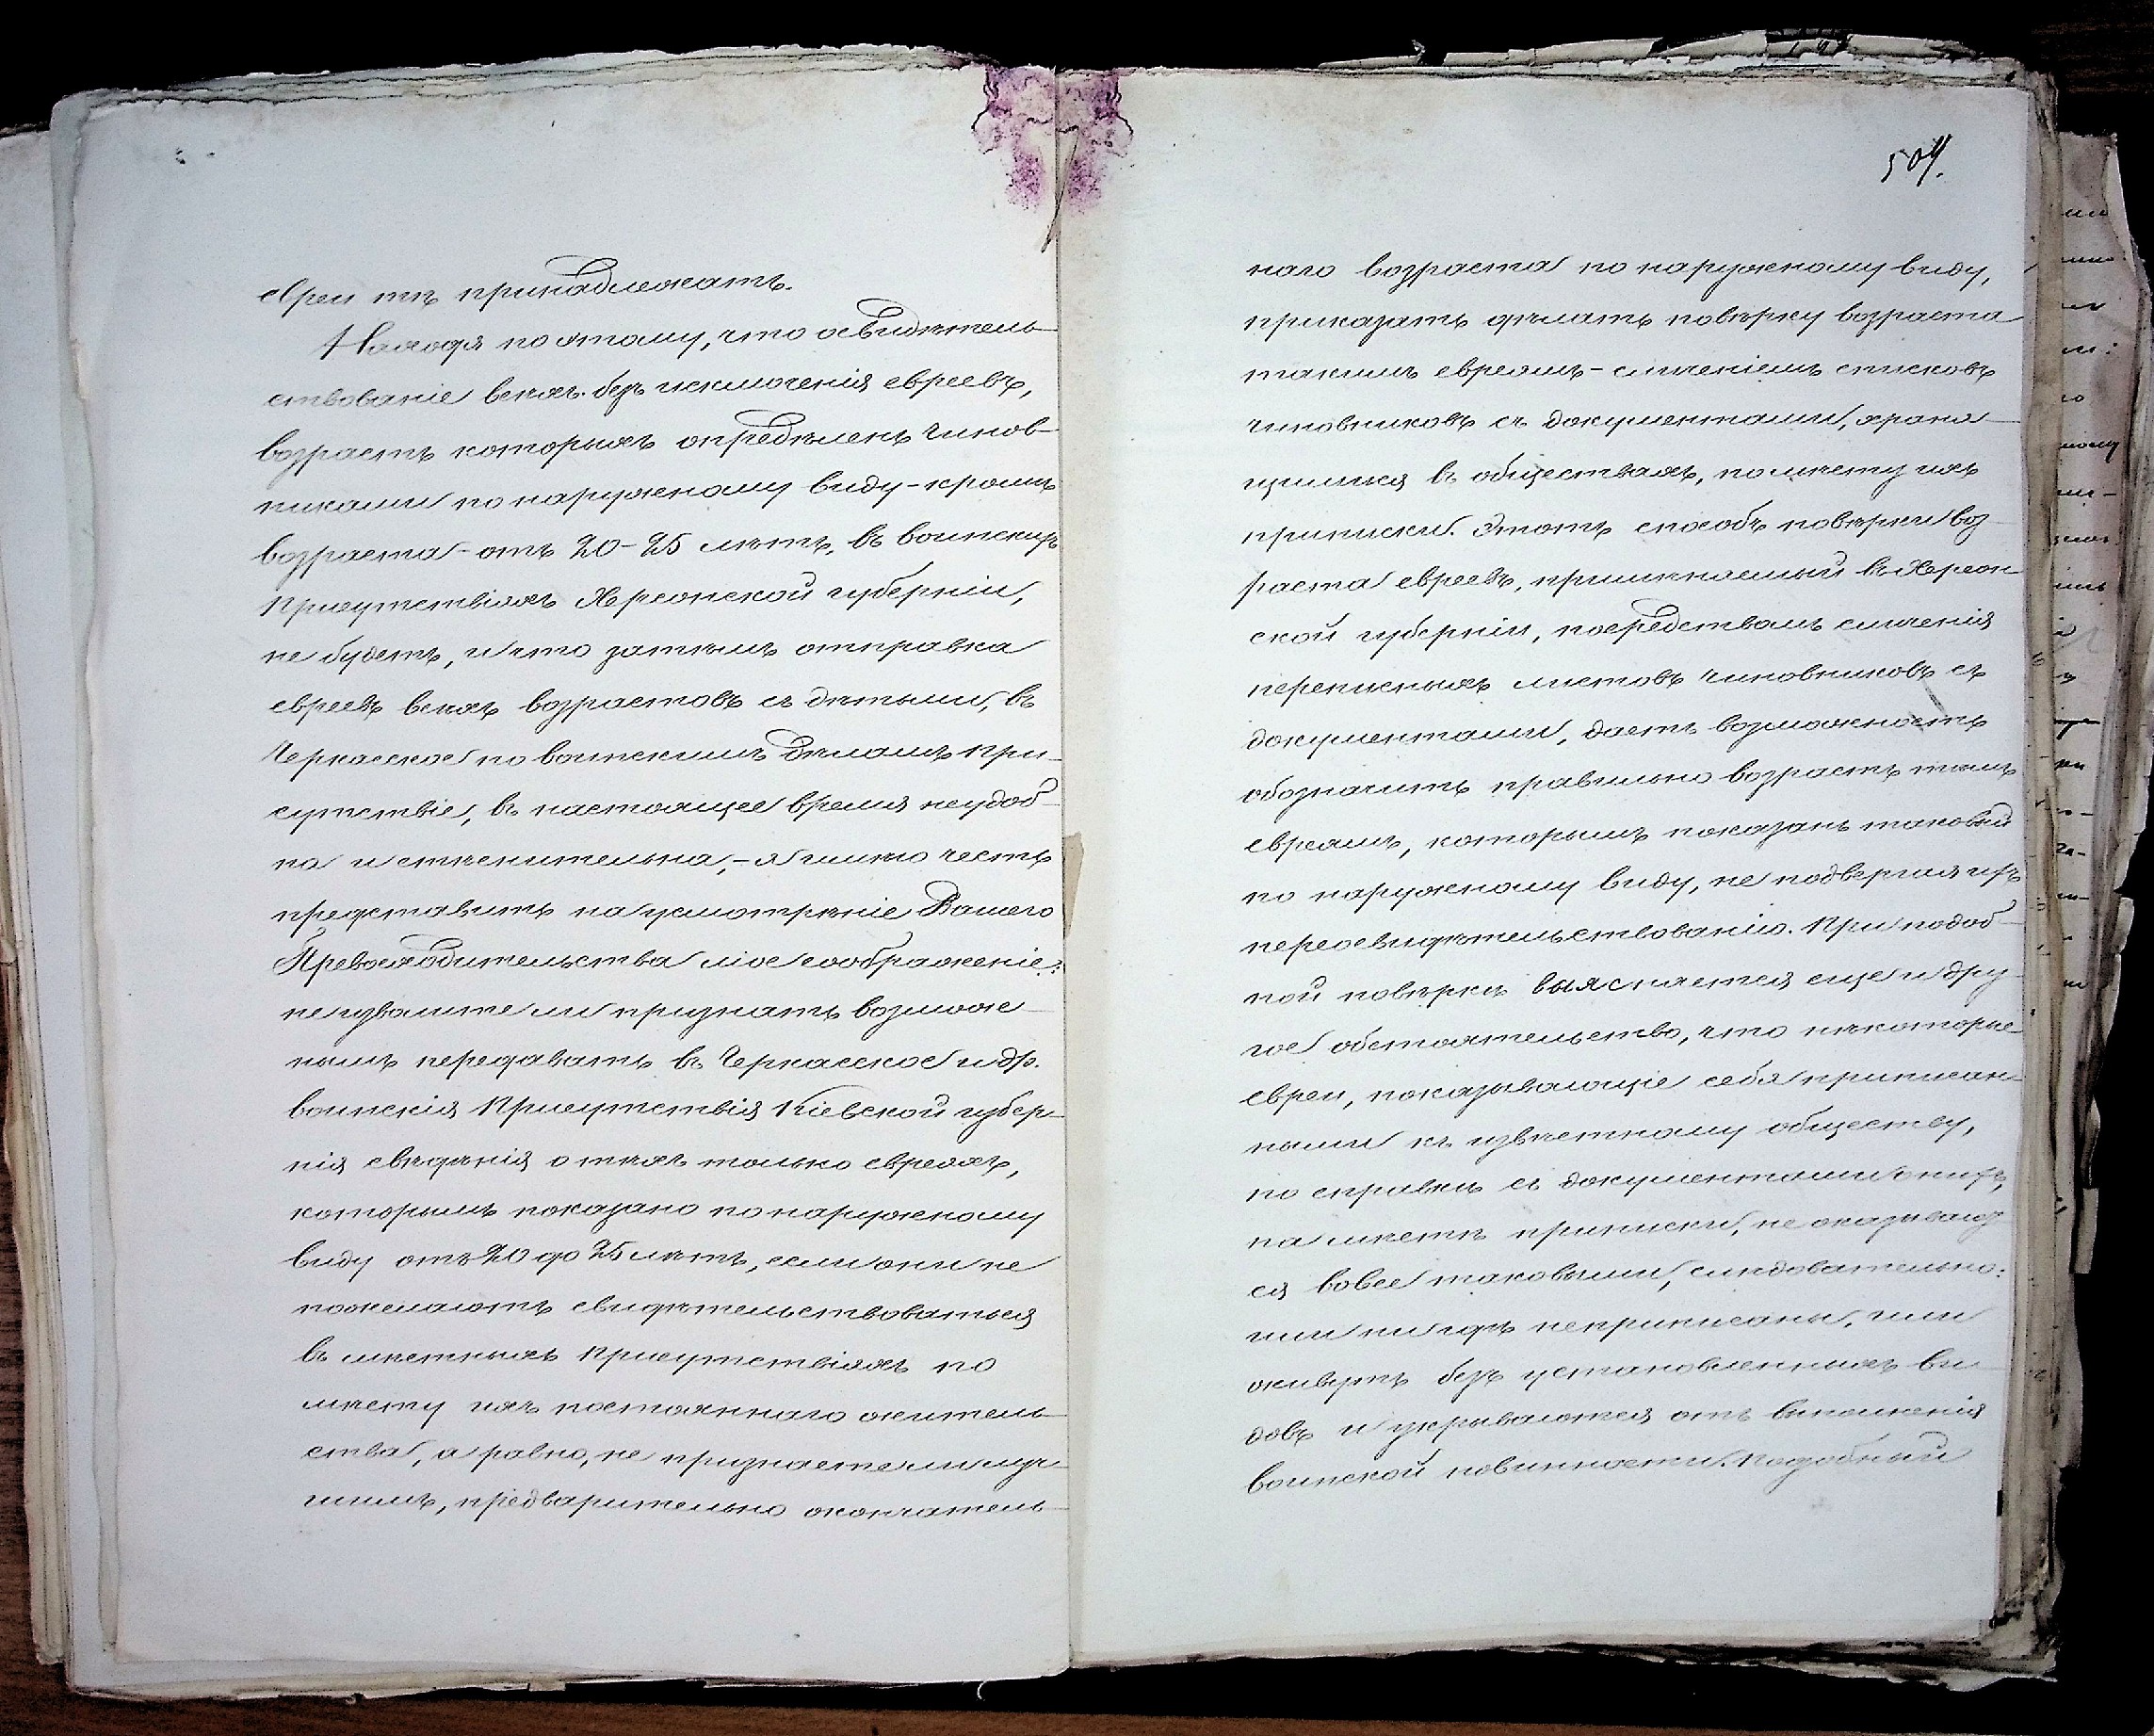 евреи тѣ принадлежатъ.
Находя по этому, что освидѣтель-
ствованіе всѣхъ безъ исключенія евреевъ,
возрастъ которыхъ опредѣленъ чинов-
никами по наружному виду - кромѣ
возраста - отъ 20-25 лѣтъ, въ воинскихъ
Присутствіяхъ Херсонской губерніи,
не будетъ, и что затѣмъ отправка
евреевъ всѣхъ возрастовъ съ дѣтьми, въ
Черкасское по воинскимъ дѣламъ При-
сутствіе, въ настоящее время неудоб-
на и стѣснительна, - я имѣю честь
представить на усмотрѣніе Вашего
Превосходительства мое соображеніе:
не изволите ли признать возмож-
нымъ передавать въ Черкасское и др.
воинскія Присутствія Кіевской губер-
нія свѣдѣнія о тѣхъ только евреяхъ,
которымъ показано по наружному
виду отъ 20 до 25 лѣтъ, если они не
пожелаютъ свидѣтельствоваться
въ мѣстныхъ Присутствіяхъ по
мѣсту ихъ постояннаго житель-
ства, а равно, не признаете ли луч-
шимъ, предварительно окончатель-
504.
наго возраста по наружному виду,
приказать дѣлать повѣрку возраста
такимъ евреямъ - сличеніемъ списковъ
чиновниковъ съ документами, храня-
щимися въ обществахъ, по мѣсту ихъ
приписки. Этотъ способъ повѣрки воз-
раста евреевъ, примѣняемый въ Херсон-
ской губерніи, посредствомъ сличенія
переписныхъ листовъ чиновниковъ съ
документами, даетъ возможность
обозначить правильно возрастъ тѣмъ
евреямъ, которымъ показанъ таковый
по наружному виду, не подвергая ихъ
переосвидѣтельствованію. При подоб-
ной повѣркѣ выясняется еще и дру-
гое обстоятельство, что нѣкоторые
евреи, показывающіе себя приписан-
ными къ извѣстному обществу,
по справкѣ съ документами о нихъ,
на мѣстѣ приписки, не оказывают-
ся вовсе таковыми, слѣдовательно:
или нигдѣ неприписаны, или
живутъ безъ установленныхъ ви-
довъ и укрываются отъ выполненія
воинской повинности. Подобный